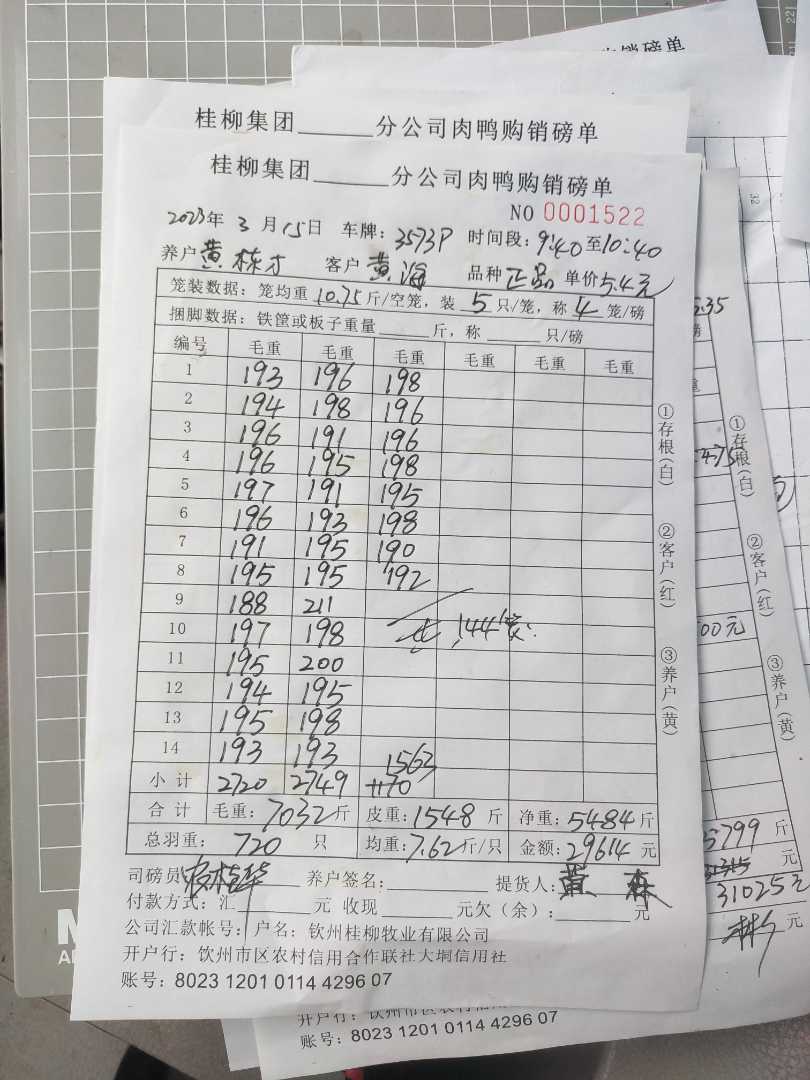 销磅单
桂柳集团______分公司肉鸭购销磅单
桂柳集团______分公司肉鸭购销磅单
NO 0001522
2023年 3 月 15日 车牌：3573P 时间段：9:40至10:40
养户黄栋才 客户 黄海 品种 正品 单价5.4元
笼装数据：笼均重10.75斤/空笼，装 5 只/笼，称 4 笼/磅
捆脚数据：铁筐或板子重量______斤，称______只/磅
编号 毛重 毛重 毛重 毛重 毛重 毛重
1 193 196 198
2 194 198 196
3 196 191 196
4 196 195 198
5 197 191 195
6 196 193 198
7 191 195 190
8 195 195 192
9 188 211
10 197 198 144笼
11 195 200
12 194 195
13 195 198
14 193 193 1563
小计 2720 2749
合计 毛重：7032斤 皮重：1548 斤 净重：5484斤
总羽重： 720 只 均重：7.62斤/只 金额：29614 元
司磅员 养户签名：______ 提货人：黄 森
付款方式：汇______元 收现______元欠（余）：______元
公司汇款帐号：户名：钦州桂柳牧业有限公司
开户行：钦州市区农村信用合作联社大垌信用社
账号：8023 1201 0114 4296 07
①存根（白）
②客户（红）
③养户（黄）
5.35
①存根（白）
②客户（红）
③养户（黄）
00元
5799 斤
31025元
元
账号：8023 1201 0114 4296 07